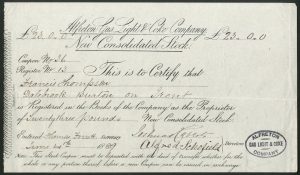 Alfreton Gas Light & Coke Company.
£23.0.0 £23.0.0
New Consolidated Stock.
Coupon No. 36
Register No. 13 This is to Certify that
Francis Thompson
Burton on Trent
is Registered in the Books of the Company as the Proprietor
of Twenty three pounds New Consolidated Stock.
Entered
June 24th 1889 Alfred Schofield Directors
Note. This Stock Coupon must be deposited with the deed of transfer whether for the whole or any portion thereof before a new Coupon can be issued in exchange.
ALFRETON
GAS LIGHT & COKE
COMPANY